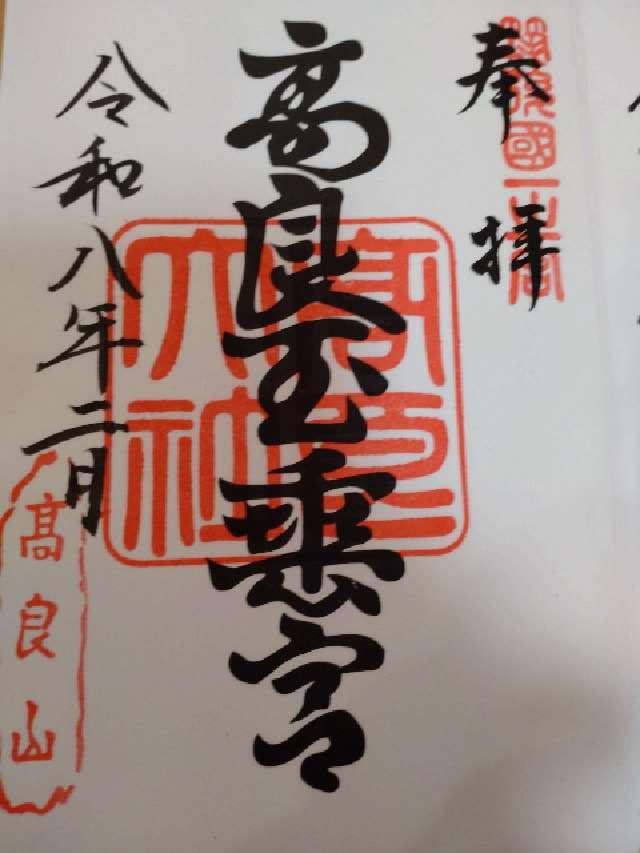 奉拝
筑後國一之宮
高良玉垂宮
高良大社
令和八年二月
髙良山